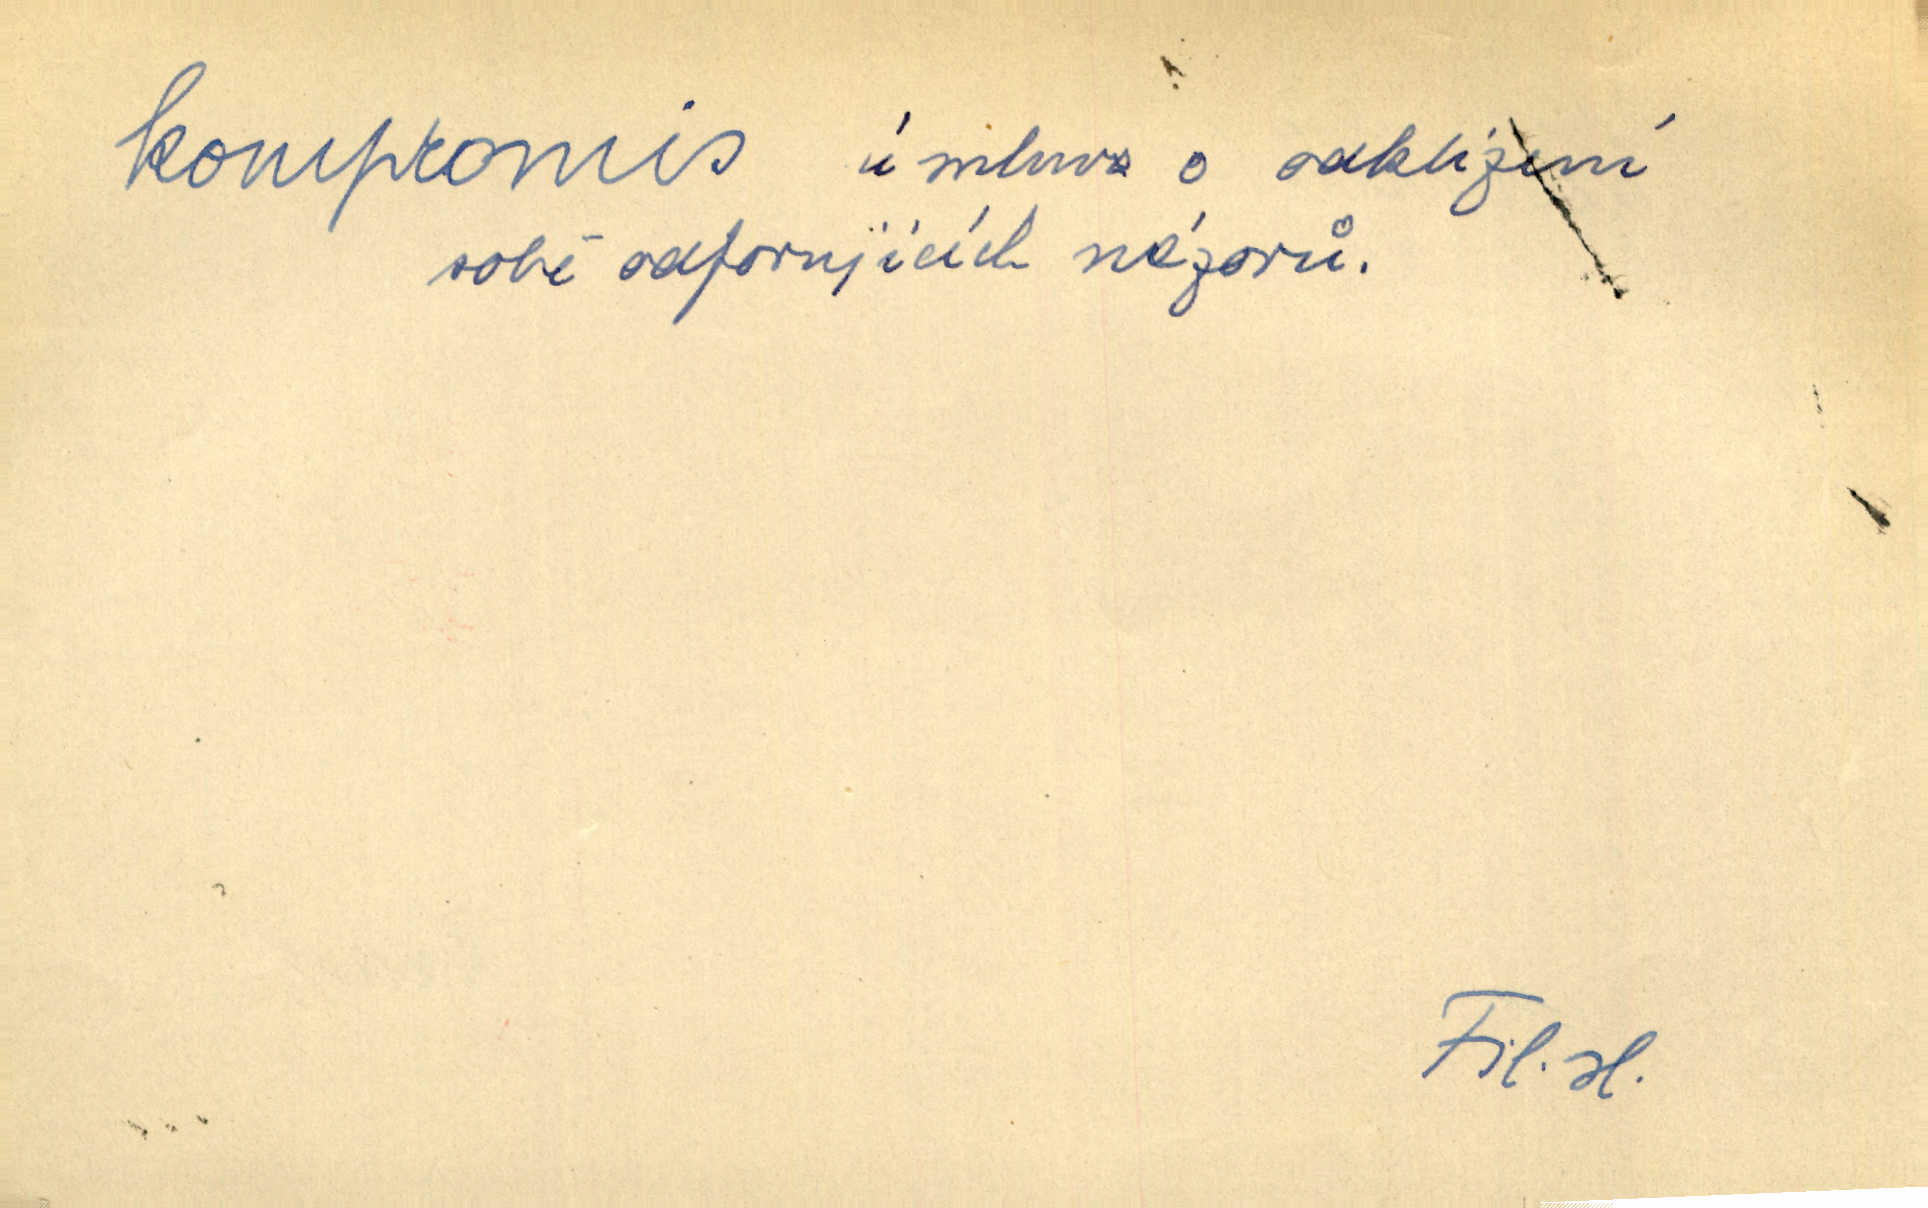 kompromis úmluva o odklizení
sobě odporujících názorů.
Fil. sl.